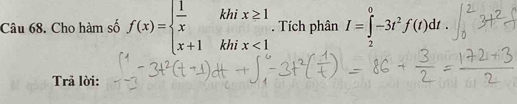 Câu 68. Cho hàm số f(x) = { 1/x khi x ≥ 1
x + 1 khi x < 1 . Tích phân I = ∫₂⁰ −3t² f(t)dt . ∫₀² 3t² f
Trả lời: ∫₋₃¹ −3t²(t−1)dt + ∫₁ −3t²(1/t) = 86 + 3/2 = 172+3/2